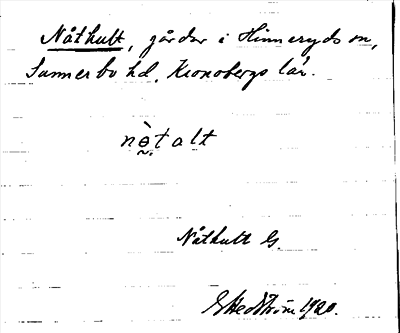 Nåthult, gårdar i Hinneryds sn,
Sunnerbo hd. Kronobergs län.
nə̰̀t alt
Nåthult G.
G Hedström 1920.